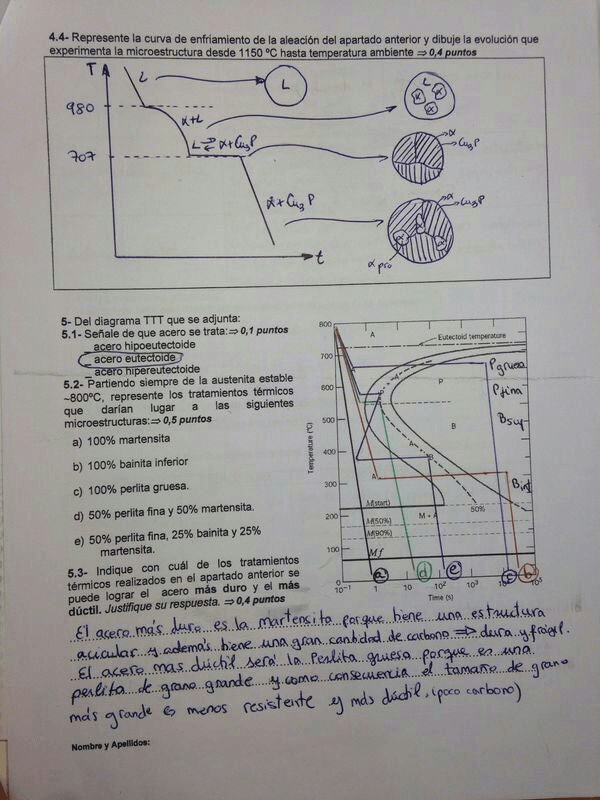 4.4- Represente la curva de enfriamiento de la aleación del apartado anterior y dibuje la evolución que
experimenta la microestructura desde 1150 ºC hasta temperatura ambiente ⇒ 0,4 puntos
T
L
L
L
980
α+L
α
α
α
L ⇌ α+Cu3P
α
Cu3P
707
α+Cu3P
α
Cu3P
α
α
α
α pro
t
5- Del diagrama TTT que se adjunta:
5.1- Señale de que acero se trata:⇒ 0,1 puntos
acero hipoeutectoide
acero eutectoide
acero hipereutectoide
5.2- Partiendo siempre de la austenita estable
~800ºC, represente los tratamientos térmicos
que darían lugar a las siguientes
microestructuras:⇒ 0,5 puntos
a) 100% martensita
b) 100% bainita inferior
c) 100% perlita gruesa.
d) 50% perlita fina y 50% martensita.
e) 50% perlita fina, 25% bainita y 25%
martensita.
5.3- Indique con cuál de los tratamientos
térmicos realizados en el apartado anterior se
puede lograr el acero más duro y el más
dúctil. Justifique su respuesta. ⇒ 0,4 puntos
800
A
Eutectoid temperature
700
P gruesa
A
600
P
P fina
500
B
B sup
A
400
B
A
300
B inf
M(start)
200
M + A
50%
M(50%)
M(90%)
100
Mf
0
a
d
e
c
b
10⁻¹
1
10
10²
10³
10⁵
Temperature (°C)
Time (s)
El acero más duro es la martensita porque tiene una estructura
acicular y además tiene una gran cantidad de carbono ⇒ dura y frágil.
El acero mas dúctil será la Perlita gruesa porque es una
perlita de grano grande y como consecuencia el tamaño de grano
más grande es menos resistente y más dúctil. (poco carbono)
Nombre y Apellidos: